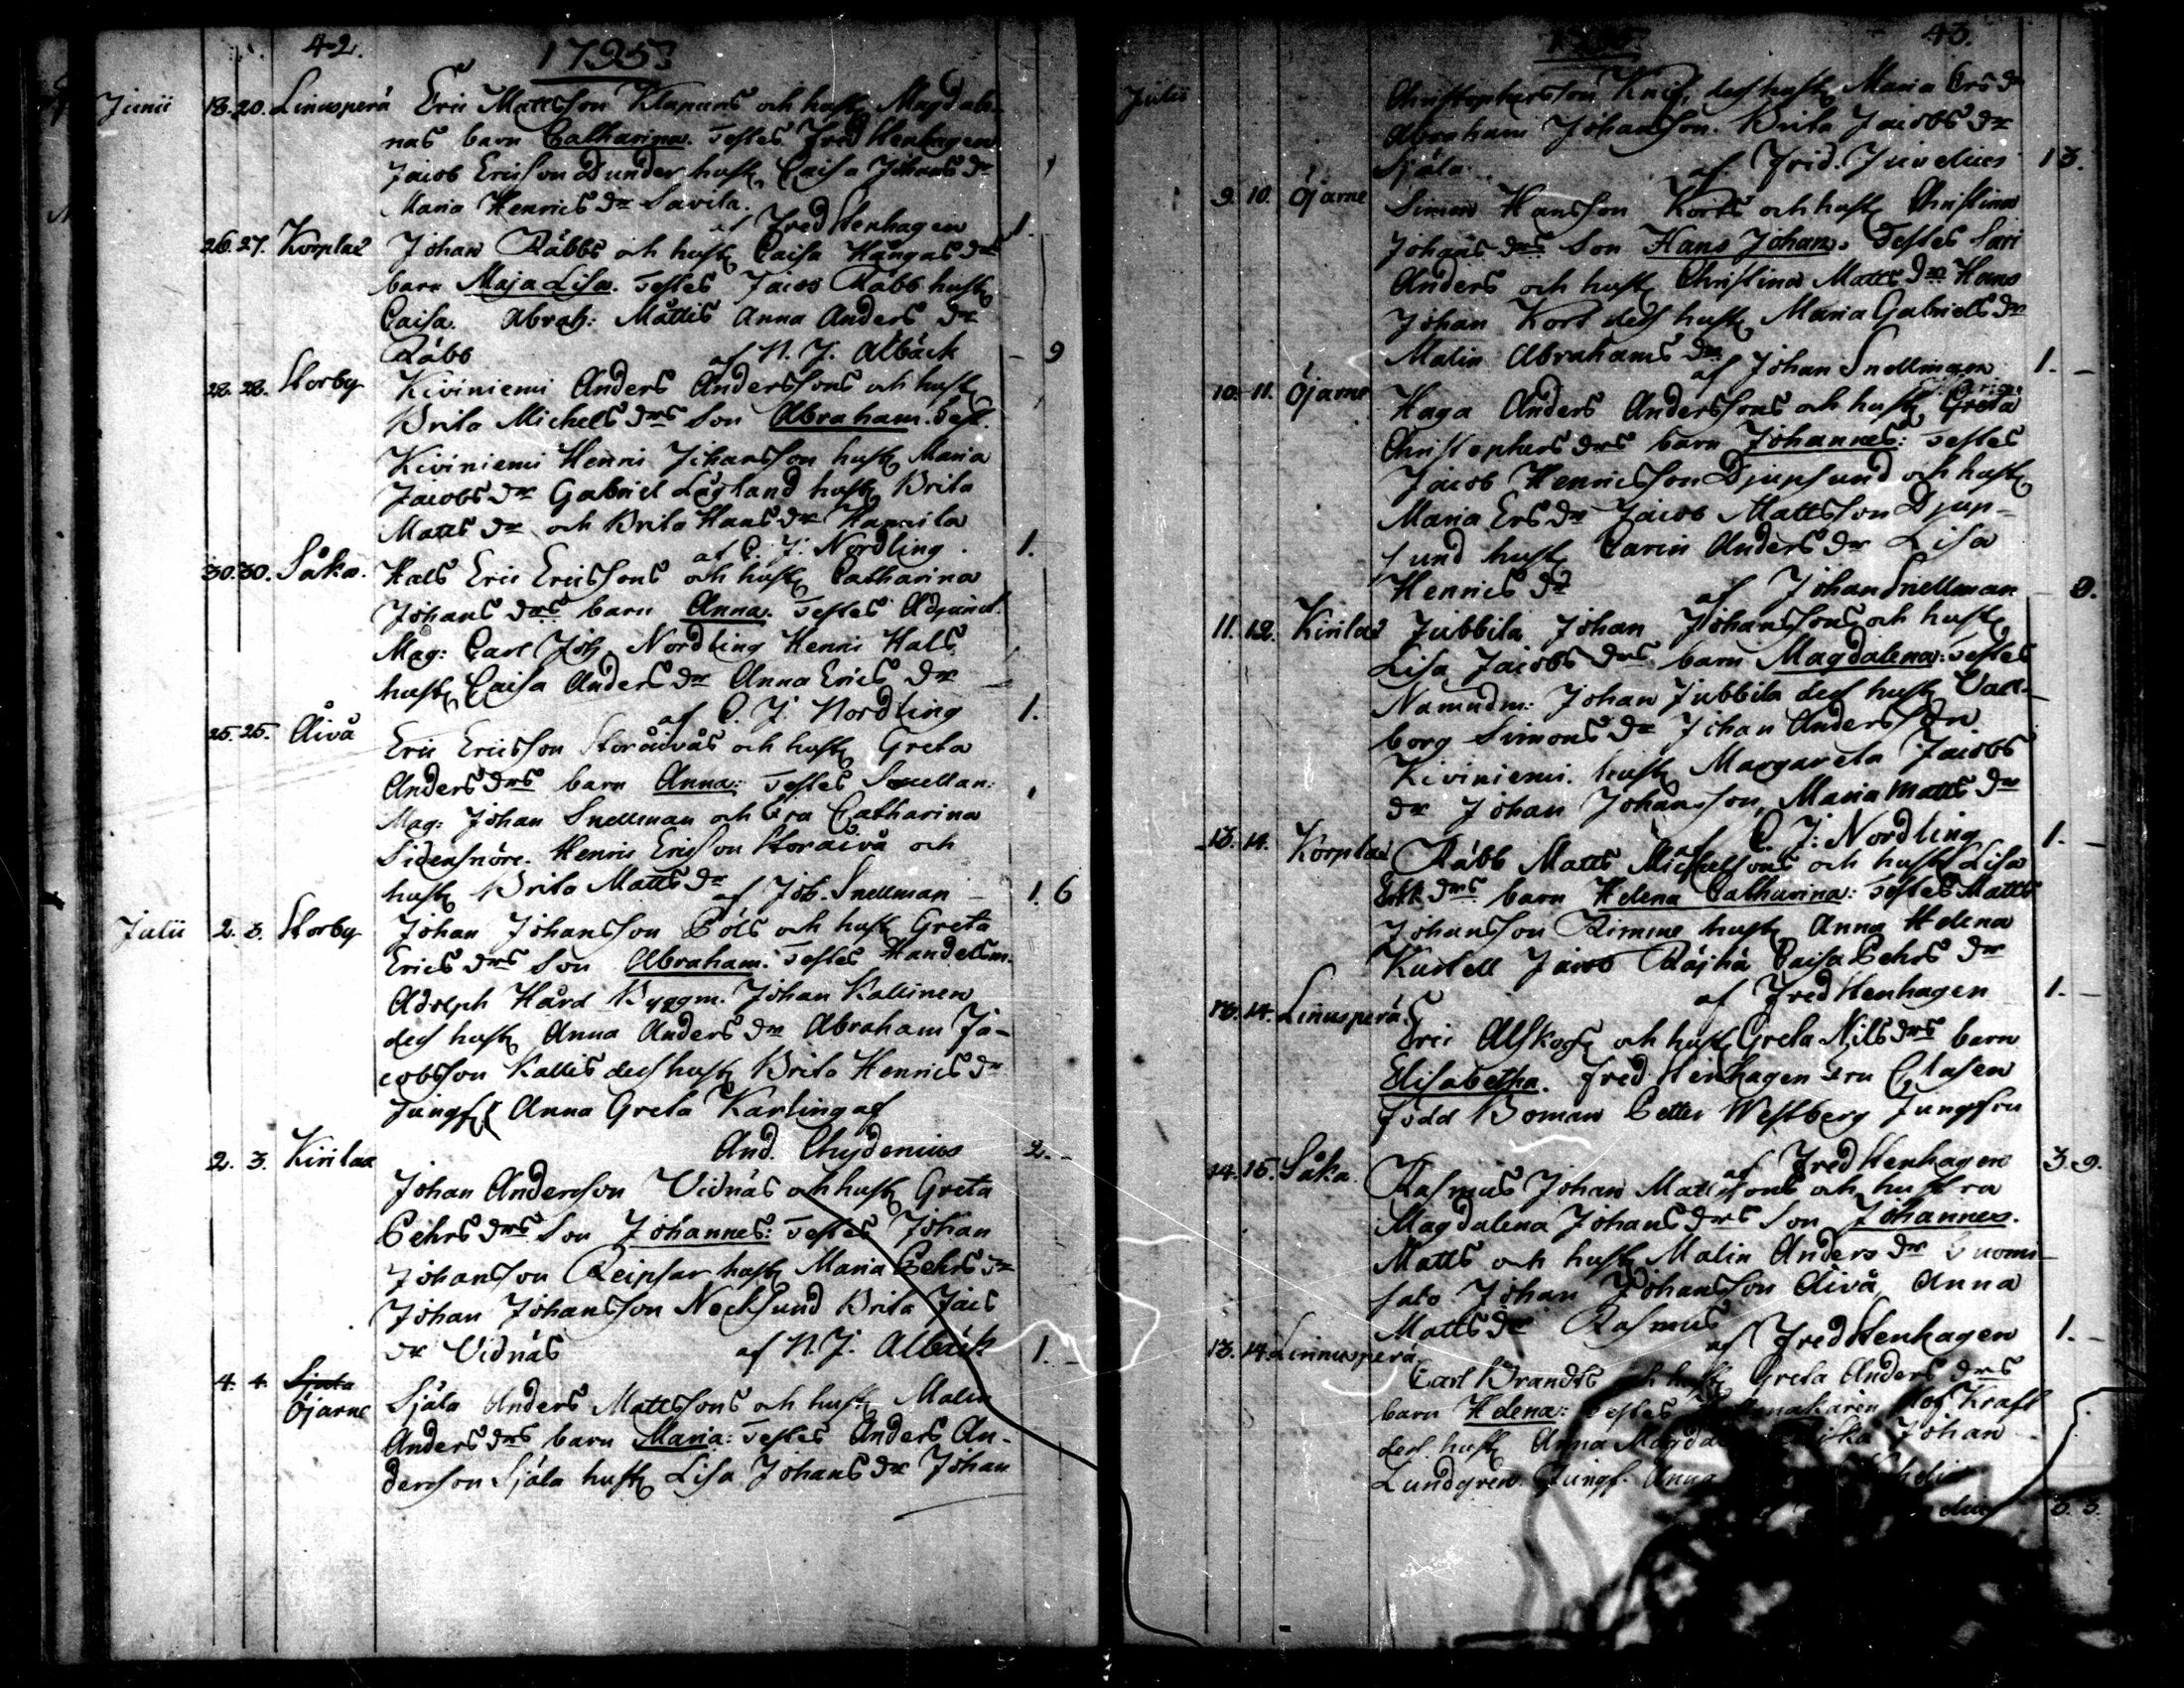 42.
1795.
Junii 18. 20. Linnsperä Eric Mattsson Klapuris och hust Magdale-
nas barn Catharina. Testes Fred Stenhagen
Jacob Ericsson Dunder hust Caisa Johans dr
Maria Henrics dr Savila.
af Fred Stenhagen 1.
26. 27. Korplax Johan Räbbs och hust Caisa Hångas drs
barn Maja Lisa. Testes Jacob Räbb hust
Caisa. Abrah: Mattis Anna Anders dr
Räbb af N. J. Albäck - 9
28. 28. Storby Kiviniemi Anders Anderssons och hust
Brita Michels drs Son Abraham. Test.
Kiviniemi Henric Johansson hust Maria
Jacobs dr Gabriel Lågland hust Brita
Matts dr och Brita Hans dr
af C. J. Nordling. 1.
30. 30. Såka. Hals Eric Ericssons och hust Catharina
Johans drs barn Anna. Testes Adjunct.
Mag: Carl Joh. Nordling Henric Hals
hust Caisa Anders dr Anna Erics dr
af C. J. Nordling 1.
25. 25. Åivå Eric Ericsson Storåivås och hust Greta
Anders drs barn Anna: Testes
Mag: Johan Snellman och Catharina
Sidensnöre. Henric Ericsson Storåivå och
hust Brita Matts dr af Joh. Snellman - 1. 6
Julii 2. 3. Storby Johan Johansson Påls och hust Greta
Erics drs Son Abraham. Testes Handelsm.
Adolph Hård Byggm. Johan Kallinen
des hust Anna Anders dr Abraham Ja-
cobsson Kallis des hust Brita Henrics dr
Jungf Anna Greta Karling af
And. Chydenius 2. -
2. 3. Kirilax
Johan Andersson Vidnäs och hust Greta
Pehrs drs Son Johannes: Testes Johan
Johansson Reipsar hust Maria Pehrs dr
Johan Johansson Nocksund Brita Jacs
dr Vidnäs af N. J. Albäck 1. -
4. 4. Sjala
Öjarne Själa Anders Mattssons och hust Malin
Anders drs barn Maria: Testes Anders An-
dersson Själa hust Lisa Johans dr Johan
43.
Julii Christophersson Knif, des hust Maria Ers dr
Abraham Johansson. Brita Jacobs dr
Själa. af Frid. Juvelius 13.
9. 10. Öjarne Simon Hansson Korts och hust Christina
Johans drs Son Hans Johan. Testes Sari
Anders och hust Christina Matts dr Hans
Johan Kort des hust Maria Gabriels dr
Malin Abrahams dr
af Johan Snellman 1. -
10. 11. Öjarne Haga Anders Anderssons och hust Greta
Christophers drs barn Johannes: Testes
Jacob Henricsson Djupsund och hust
Maria Ers dr Jacob Mattsson Djup-
sund hust Carin Anders dr Lisa
Henrics dr af Johan Snellman - 9.
11. 12. Kirilax Jubbila Johan Johanssons och hust
Lisa Jacobs drs barn Magdalena: Testes
Nämndm: Johan Jubbila des hust Vall-
borg Simons dr Johan Andersson
Kiviniemi. hust Margareta Jacobs
dr Johan Johansson, Maria Matts dr
af C. J. Nordling 1. -
13. 14. Korplax Räbb Matts Michelsons och hust Lisa
drs barn Helena Catharina: Testes Matts
Johansson Rimme hust Anna Helena
Kustell Jacob Räjhä Caisa Pehrs dr
af Fred Stenhagen 1. -
13. 14. Linnsperä.
Eric Alskog och hust Greta Nils drs barn
Elisabetha. Fred Stenhagen Fru Clasen
född Boman Petter Westberg Jungfru
af Fred Stenhagen 3. 9.
14. 15. Såka. Rasmus Johan Mattssons och hustra
Magdalena Johans drs Son Johannes.
Matts och hust Malin Anders dr Suomi-
salo Johan Johansson Åivå Anna
Matts dr Rasmus
af Fred Stenhagen 1. -
13. 14. Linnusperä
Carl Brandts och hust Greta Anders drs
barn Helena: Testes Kraft
des hust Anna Johan
Lundgren. Jungf. Anna
3. 3.